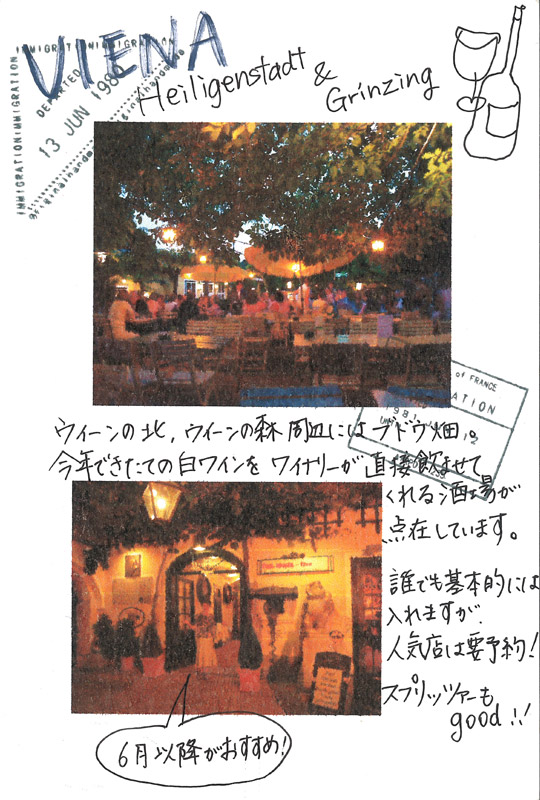 VIENA
IMMIGRATIONIMMIGRATION
IMMIGRATIONIMMIGRATION
DEPARTED
13 JUN 1980
Heiligenstadt
& Grinzing
of FRANCE
ウィーンの北，ウィーンの森周辺にはブドウ畑。
今年できたての白ワインを ワイナリーが直接飲ませて
くれる酒場が
点在しています。
誰でも基本的には
入れますが、
人気店は要予約！
スプリッツァーも
good!!
6月以降がおすすめ！